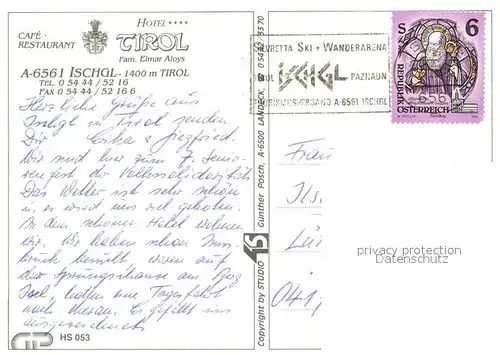 HOTEL ****
CAFÉ-
RESTAURANT
TIROL
Fam. Elmar Aloys
A-6561 ISCHGL - 1400 m TIROL
TEL. 0 54 44 / 52 16
FAX 0 54 44 / 52 16 6
Herzliche Grüße aus
Ischgl in Tirol senden
Dir Erika & Siegfried.
Wir sind hier zum 7. Senio-
renfest der Volkssolidarität
Das Wetter ist sehr schön
u. es wird uns viel geboten.
In dem schönen Hotel wohnen
wir. Wir haben schon Inns-
bruck besucht waren auf
der Sprungschanze am Berg
Isel, hatten eine Tagesfahrt
nach Meran. Es gefällt uns
ausgezeichnet
HS 053
Copyright by STUDIO 15 Günther Posch, A-6500 LANDECK, 0 54 42 / 33 70
SILVRETTA SKI + WANDERARENA
TIROL ISCHGL PAZNAUN
TOURISMUSVERBAND A-6561 ISCHGL
S 6
REPUBLIK
ÖSTERREICH
Frau
privacy protection
Daksammler
041